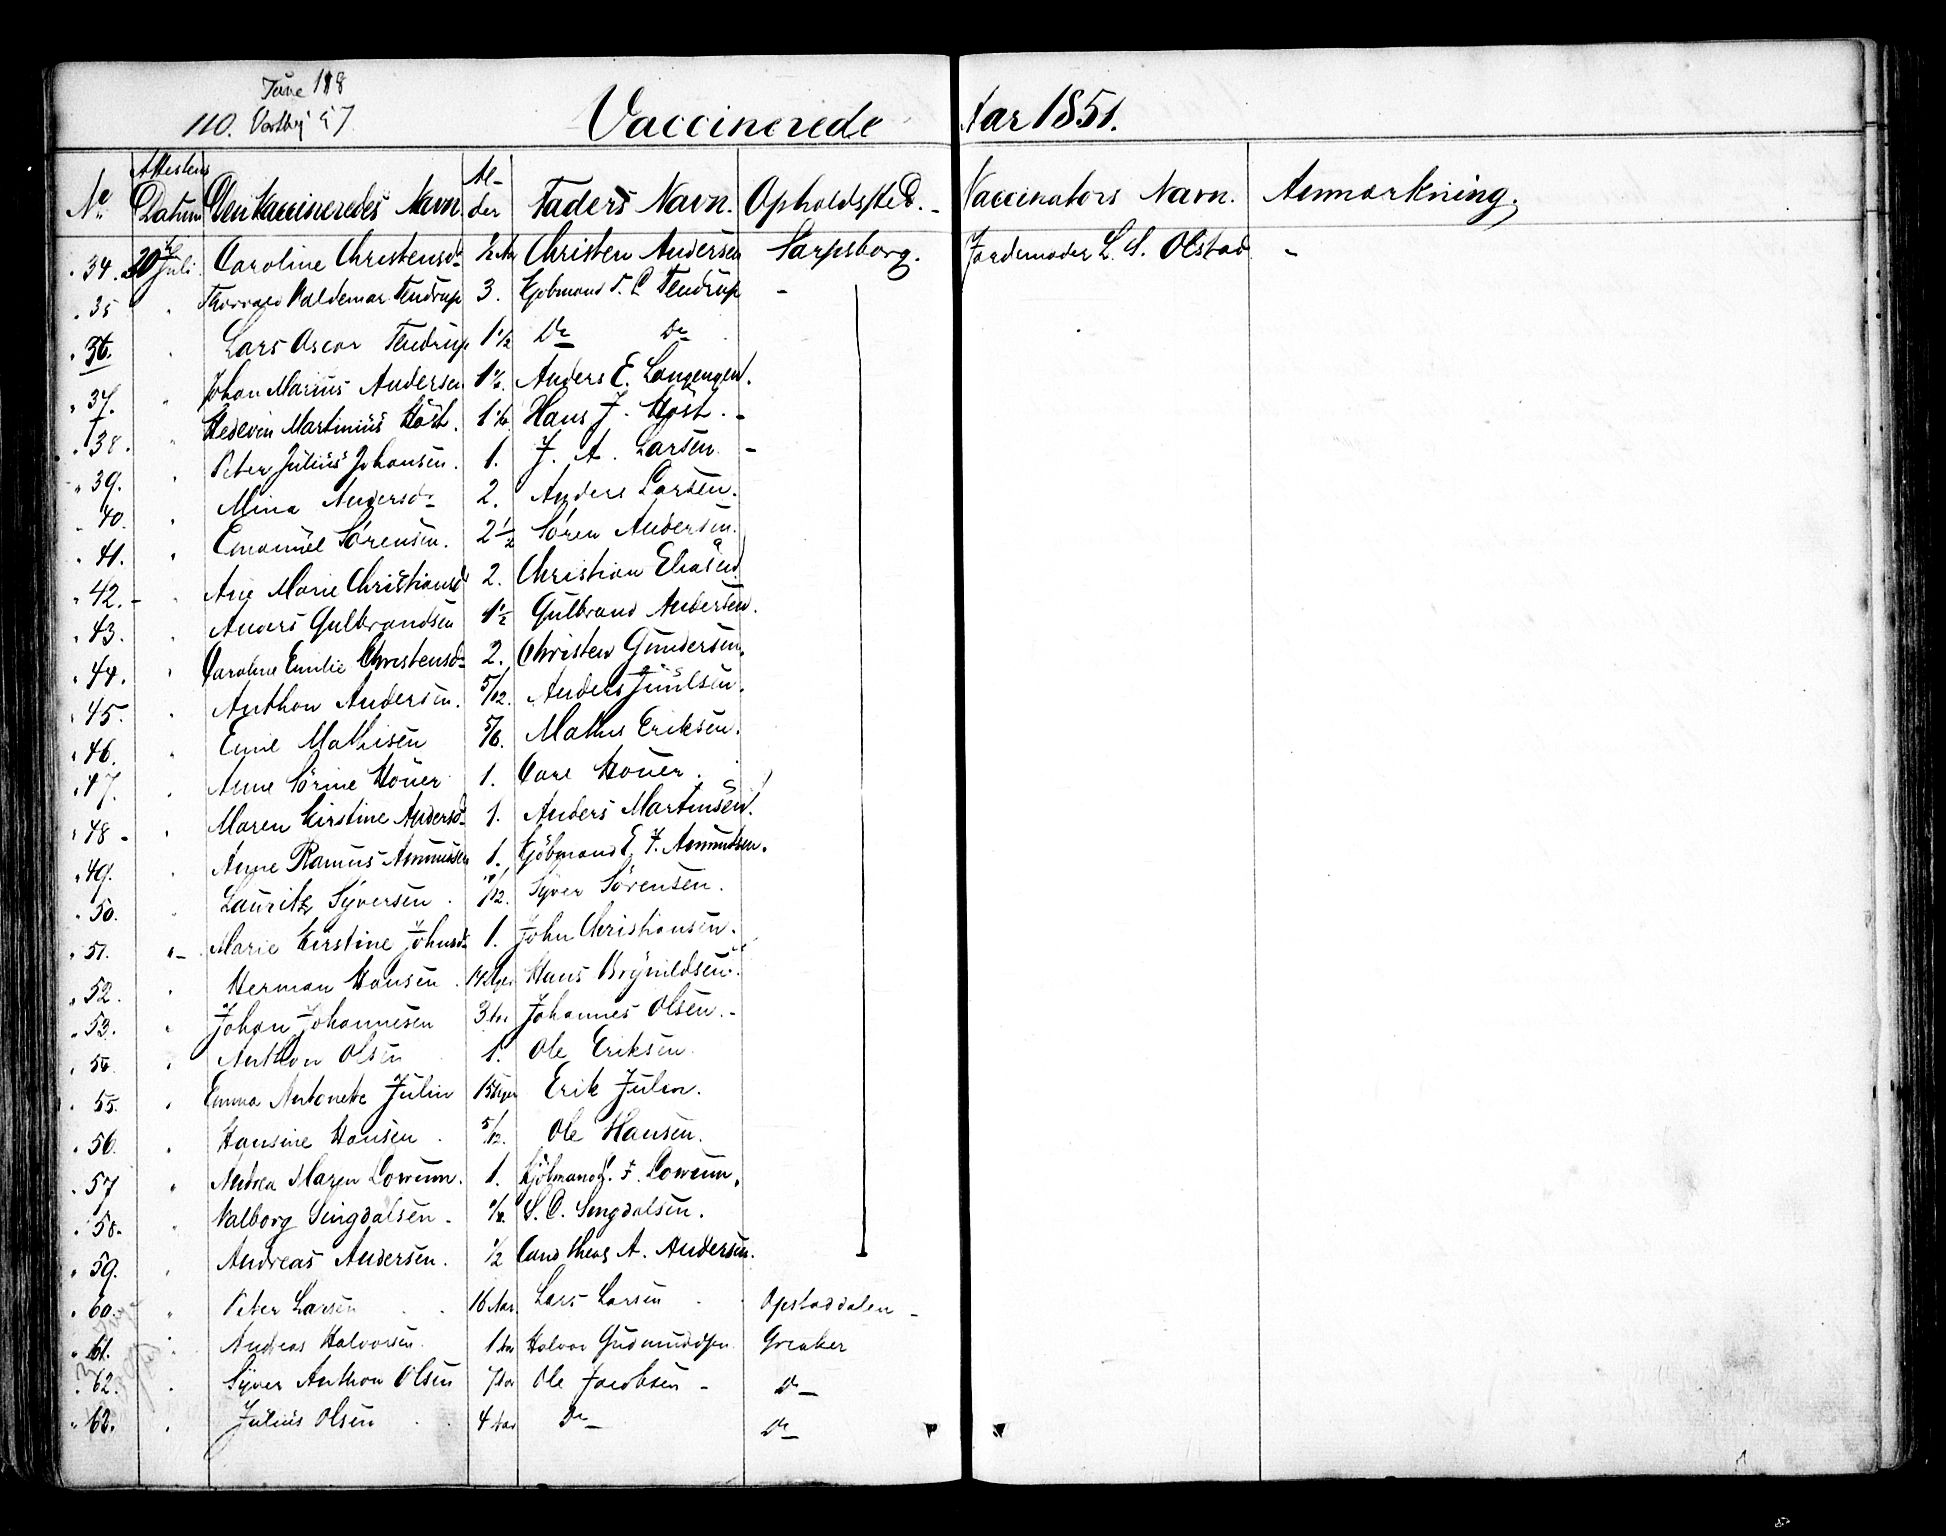 Tune 118
110. Varteig 57
Vaccinerede Aar 1851.
No Attestens Datum Den Vaccineredes Navn Alder Faders Navn. Opholdssted. Vaccinators Navn. Anmærkning.
34. 20de Juli Caroline Christensd. 2 Aar Christen Andersen Sarpsborg. Jordemoder L. S. Olstad "
35 " Thorvald Valdemar Tendrup 3. Kjøbmand T. C. Tendrup "
36. " Lars Oscar Tendrup 1 1/2 Do Do
37. " Johan Marius Andersen Anders E. Langengen.
38. " Martinius Høst. Hans J. Høst.
39. " Peter Julius Johansen. 1. J. A. Larsen
40. " Mina Andersd. 2. Anders Larsen.
41. " Emanuel Sørensen. 2 1/2 Søren Andersen.
42. " Ane Marie Christiansd 2. Christian Eliasen
43. " Anders Gulbrandsen 1 1/2 Gulbrand Andersen.
44. " Caroline Emilie Christensd. 2. Christen Gundersen.
45. " Anthon Andersen. 5/12. Anders Juulsen.
46. " Emil Mathisen 5/6. Mathis Eriksen.
47. " Anne Sørine Houer 1. Carl Houer.
48 " Maren Kirstine Andersd. 1. Anders Martinsen.
49. " Anne Ramus Asmundsen 1. Kjøbmand E. F. Asmundsen.
50. " Lauritz Syversen Syver Sørensen.
51. " Marie Kirstine Johnsd. 1. John Christiansen.
52. " Herman Hansen 14 Uger Hans Brynildsen.
53. " Johan Johannesen 3 Aar Johannes Olsen.
54. " Anthon Olsen 1. Ole Eriksen.
55. " Emma Antonette Julin 15 Uger Erik Julin.
56. " Hansine Hansen 5/12. Ole Hansen.
57 " Andrea Maren Lowum. 1. Kjøbmand F. Lowum.
58. " Valborg Singdalsen. S. C. Singdalsen.
59. " Andreas Andersen. 1/2 Cand theol A. Andersen.
60. " Peter Larsen 16 Aar Lars Larsen Opstaddalen
61. " Andreas Halvorsen. 1 Aar Halvor Gudmundsen Greaker
62. " Syver Anthon Olsen 7 Aar Ole Jacobsen Do
62. " Julius Olsen 4 Aar Do Do